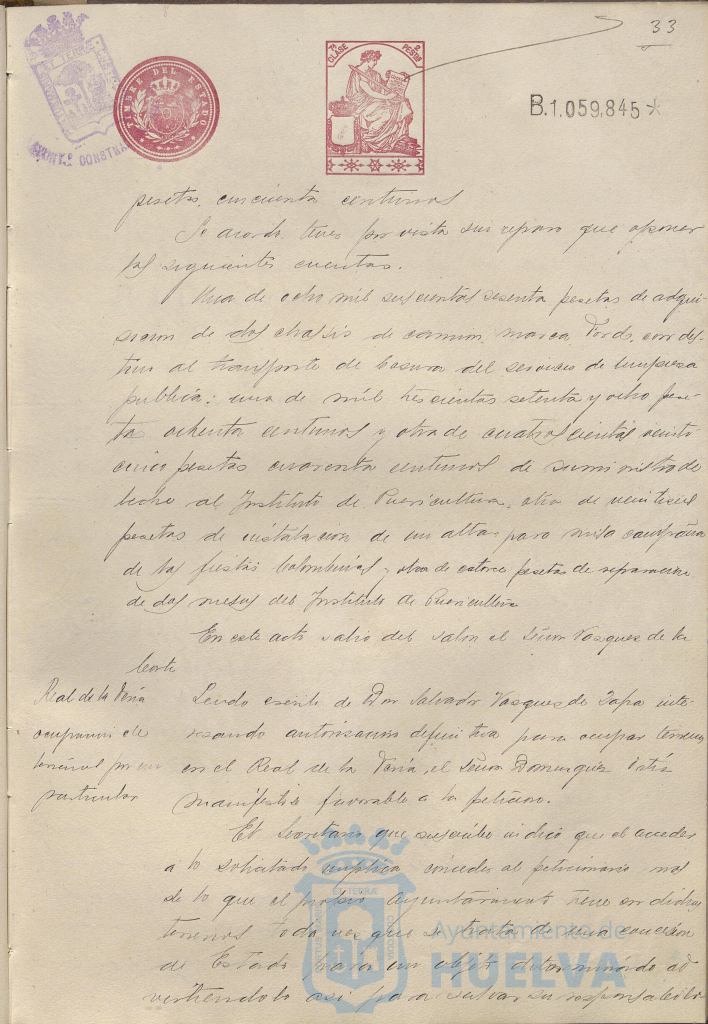 33
7ª CLASE 2 PESETAS
TIMBRE DEL ESTADO
B.1.059.845*
pesetas cincuenta centimos
Se acordó tener por vista sin reparo que oponer
las siguientes cuentas.
Una de ocho mil sesenta pesetas de adqui-
sicion de dos chassis de camion, marca Ford, con des-
tino al transporte de basura del servicio de limpieza
publica: una de mil trescientas setenta y ocho pese-
tas ochenta centimos y otra de cuatrocientas veinti-
cinco pesetas cuarenta centimos de suministro de
leche al Instituto de Puericultura, otra de
pesetas de instalacion de un altar para misa campaña
de las fiestas Colombinas y otra de catorce pesetas de reparacion
de dos mesas del Instituto de Puericultura
En este acto salio del salon el Señor Vazquez de la
Corte
Real de la Feria
ocupacion de
terrenos por un
particular
Leido escrito de Don Salvador Vazquez de Zafra inte-
resando autorizacion definitiva para ocupar terrenos
en el Real de la Feria, el Señor Dominguez Ortiz
manifestose favorable a la peticion.
El Secretario que suscribe indicó que el acceder
a lo solicitado implica conceder al peticionario mas
de lo que el propio Ayuntamiento tiene en dichos
terrenos toda vez que se trata de una concesion
de Estado para un objeto determinado ad-
virtiendolo asi para salvar su responsabili-
Ayuntamiento de
HUELVA